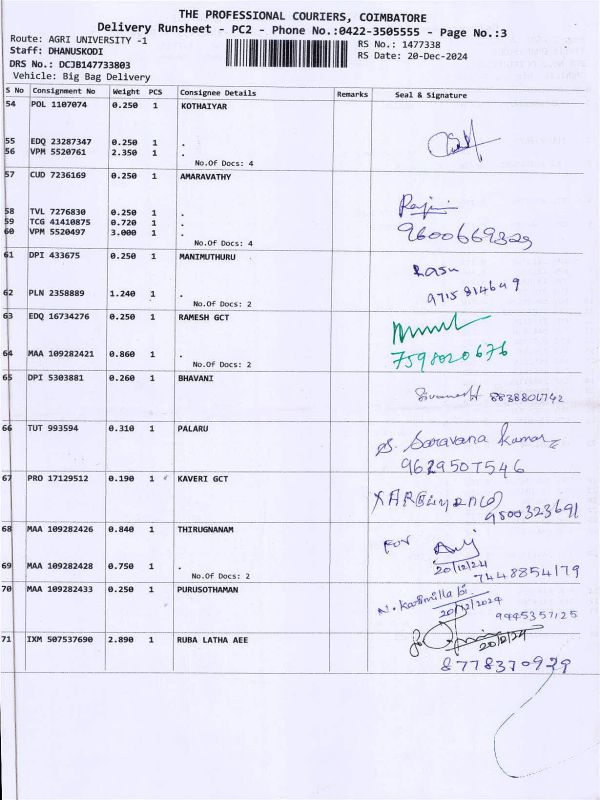 THE PROFESSIONAL COURIERS, COIMBATORE
Delivery Runsheet - PC2 - Phone No.:0422-3505555 - Page No.:3
Route: AGRI UNIVERSITY -1
RS No.: 1477338
Staff: DHANUSKODI
RS Date: 20-Dec-2024
DRS No.: DCJB147733803
Vehicle: Big Bag Delivery
S No Consignment No Weight PCS Consignee Details Remarks Seal & Signature
54 POL 1107074 0.250 1 KOTHAIYAR
55 EDQ 23287347 0.250 1 .
56 VPM 5520761 2.350 1 .
No.Of Docs: 4
57 CUD 7236169 0.250 1 AMARAVATHY
58 TVL 7276830 0.250 1 .
Raji
59 TCG 41410875 0.720 1 .
60 VPM 5520497 3.000 1 .
9600669329
No.Of Docs: 4
61 DPI 433675 0.250 1 MANIMUTHURU
Rasu
62 PLN 2358889 1.240 1 .
9715814649
No.Of Docs: 2
63 EDQ 16734276 0.250 1 RAMESH GCT
64 MAA 109282421 0.860 1 .
7598020676
No.Of Docs: 2
65 DPI 5303881 0.260 1 BHAVANI
8838806742
66 TUT 993594 0.310 1 PALARU
S. Saravana Kumar
9629507546
67 PRO 17129512 0.190 1 KAVERI GCT
9500323691
68 MAA 109282426 0.840 1 THIRUGNANAM
FOR
20/12/24
69 MAA 109282428 0.750 1 .
7448854179
No.Of Docs: 2
70 MAA 109282433 0.250 1 PURUSOTHAMAN
N. Karimilla bi
20/12/2024
9445357125
71 IXM 507537690 2.890 1 RUBA LATHA AEE
20/12/24
8778370929